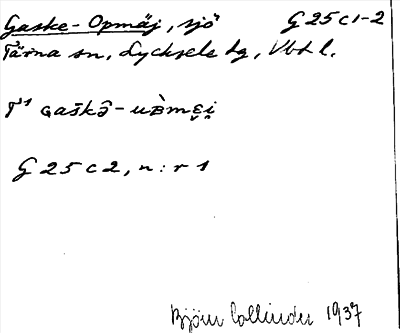 Gaske-Opmäj, sjö G 25 c 1-2
Tärna sn, Lycksele lg, Vbtl.
G 25 c 2, n:r 1
Björn Collinder 1937